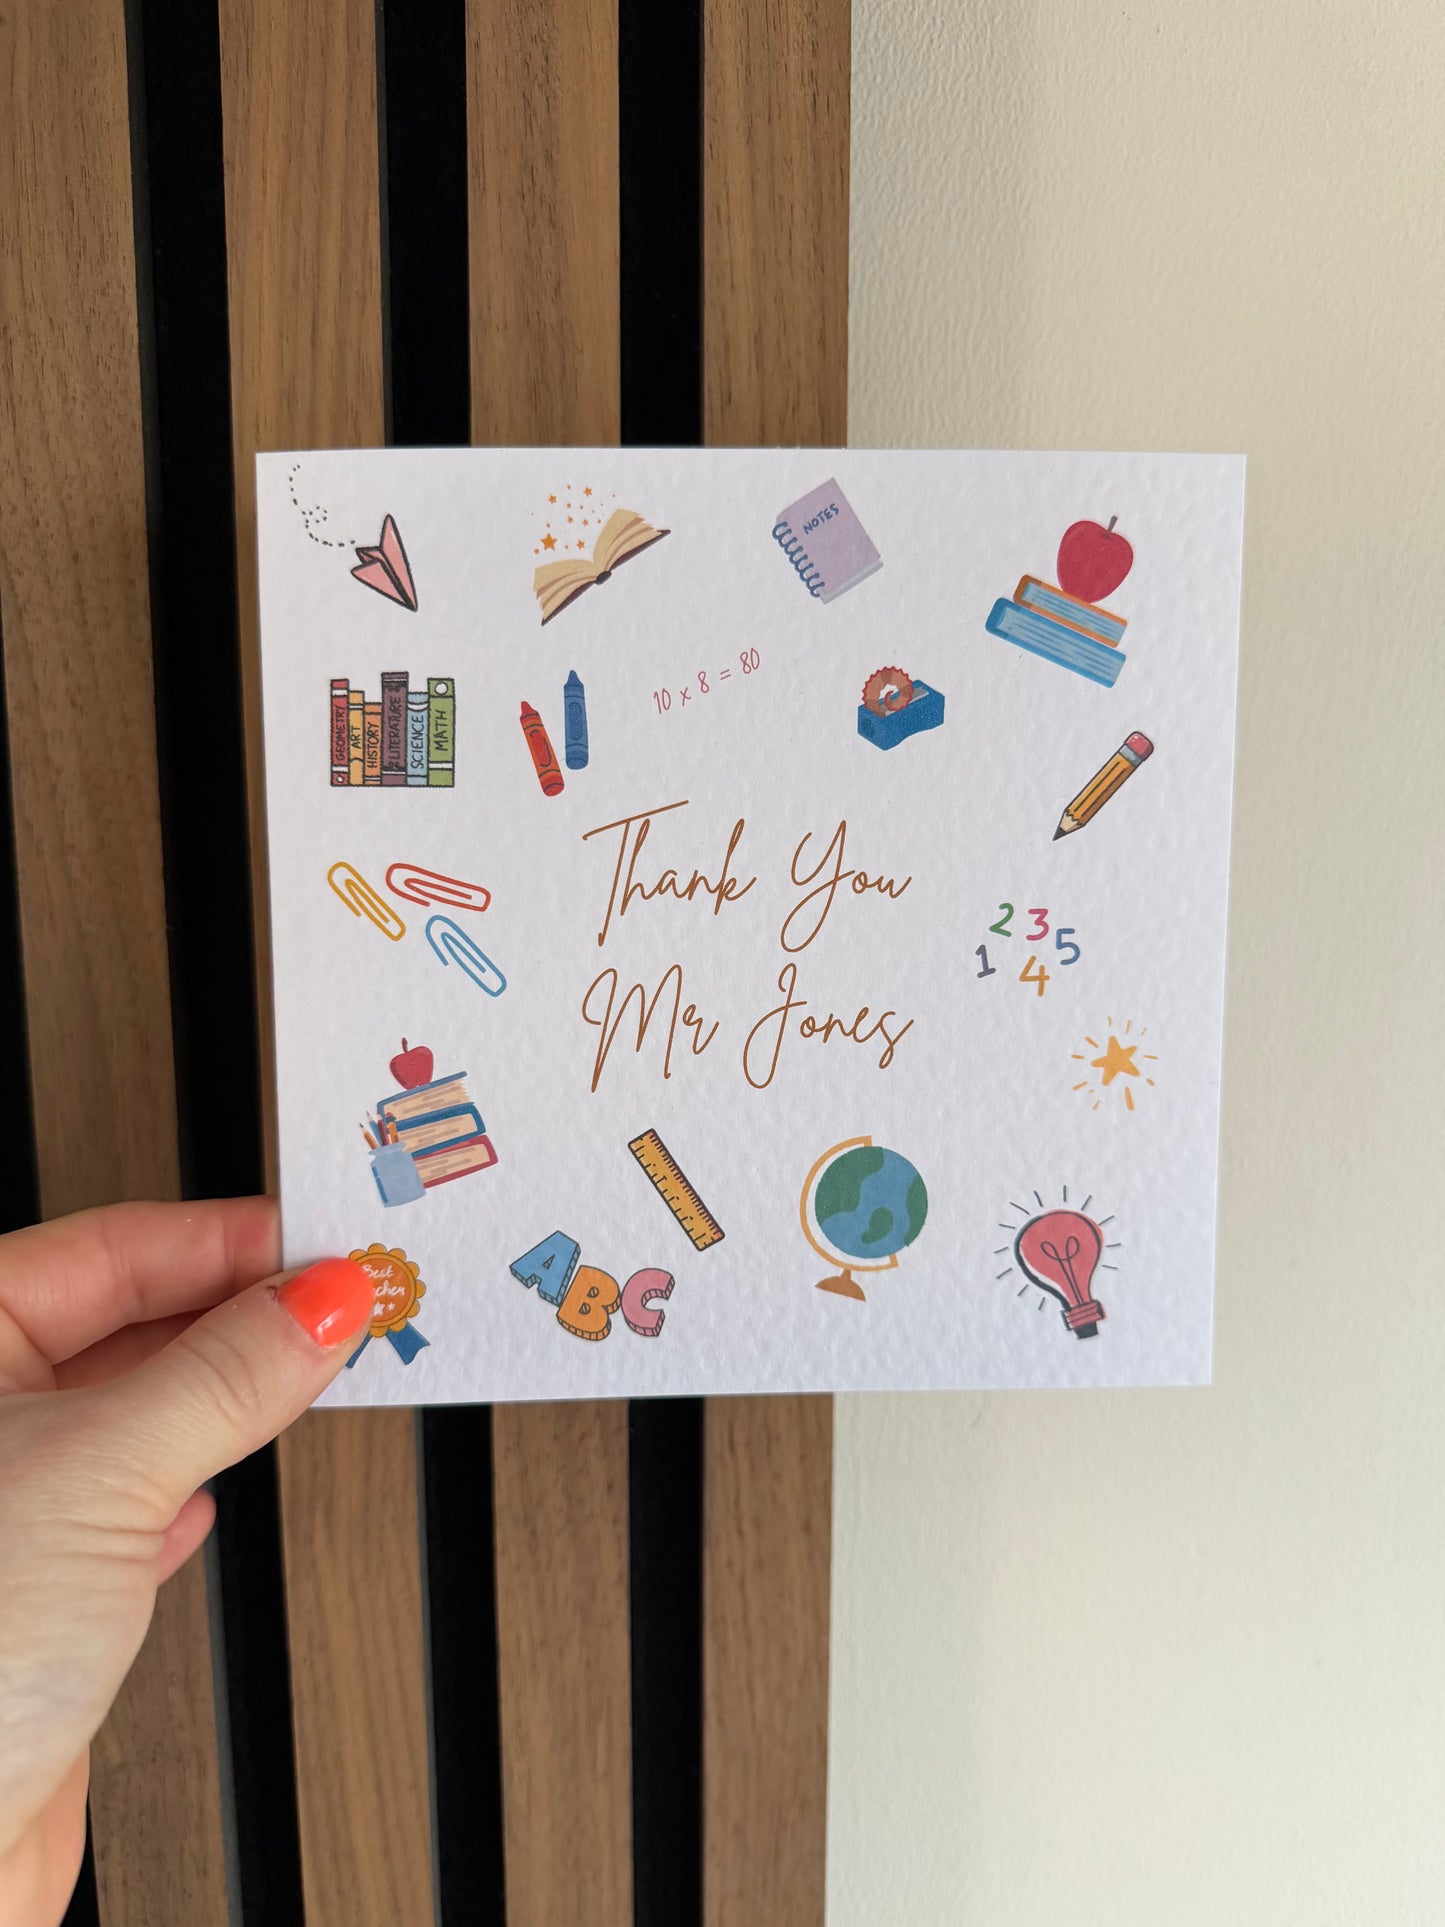 NOTES
GEOMETRY
ART
HISTORY
LITERATURE
SCIENCE
MATH
10 x 8 = 80
Thank You
Mr Jones
1 2 3 4 5
ABC
Best